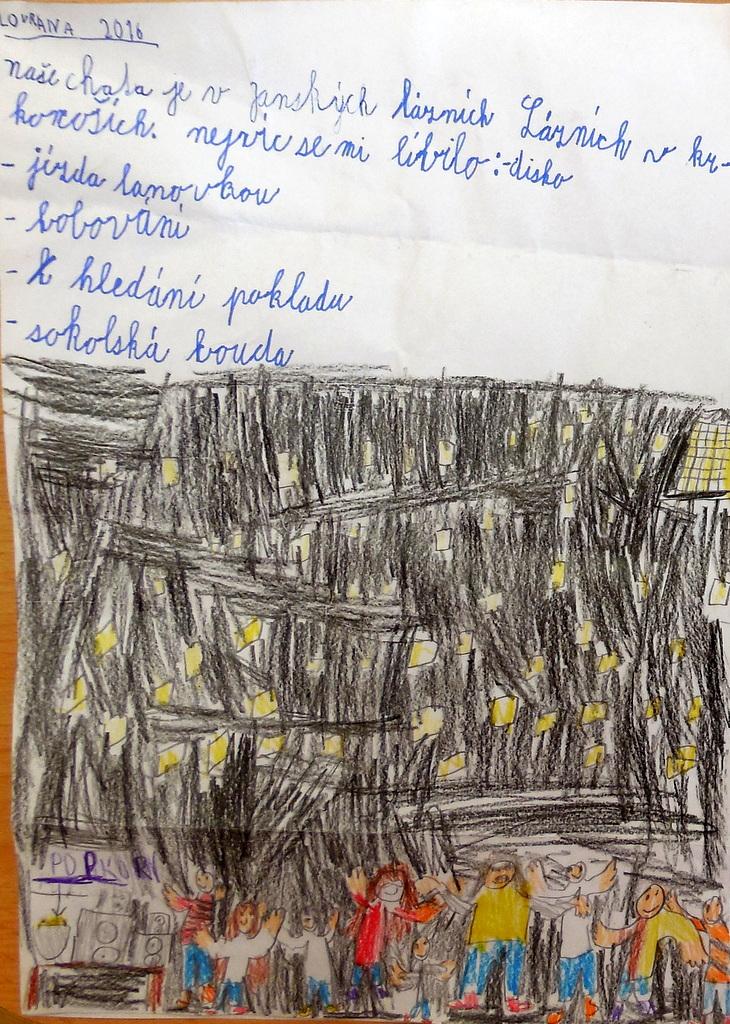 LOVRANA 2016
naše chata je v janských lázních Lázních v kr-
konoších. nejvíc se mi líbilo:-disko
- jízda lanovkou
- bobování
- X hledání pokladu
- sokolská bouda
POPKORN